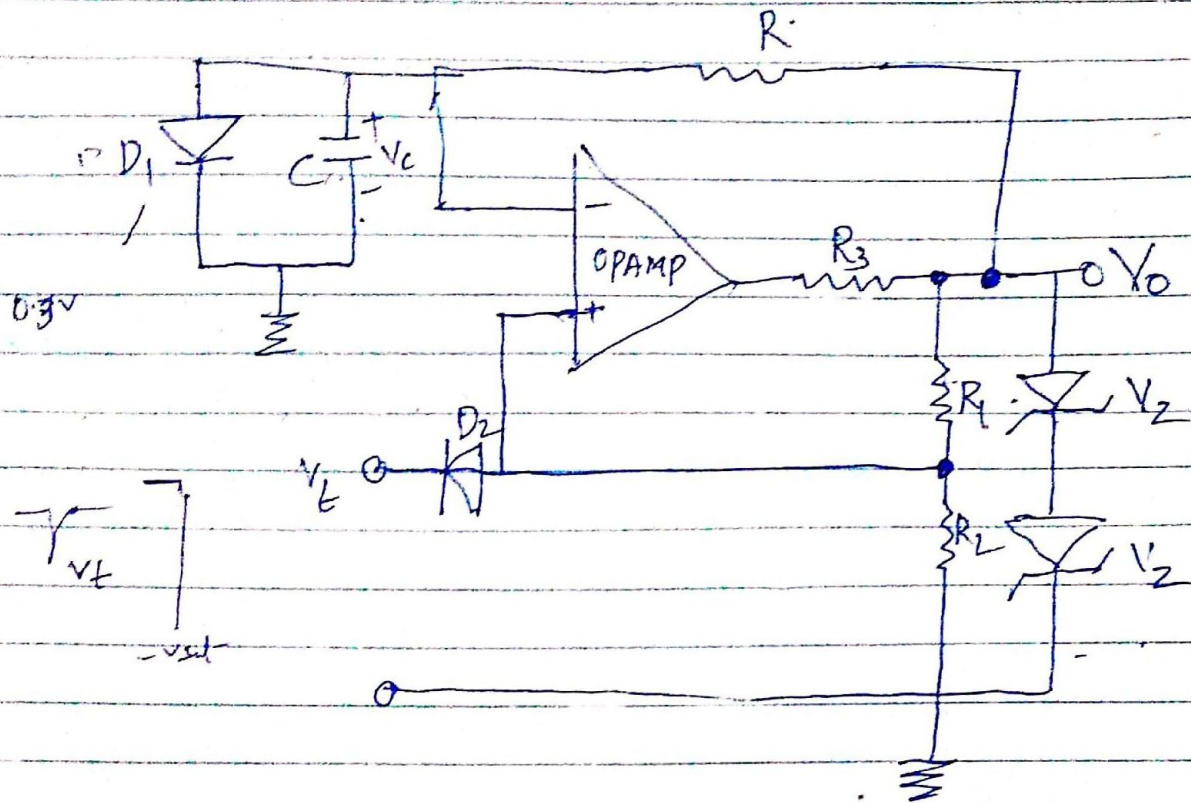 R
D1
C
+
Vc
-
-
OPAMP
+
R3
Vo
0.3V
R1
Vz
D2
Vt
R2
Vz
Vt
-Vsat